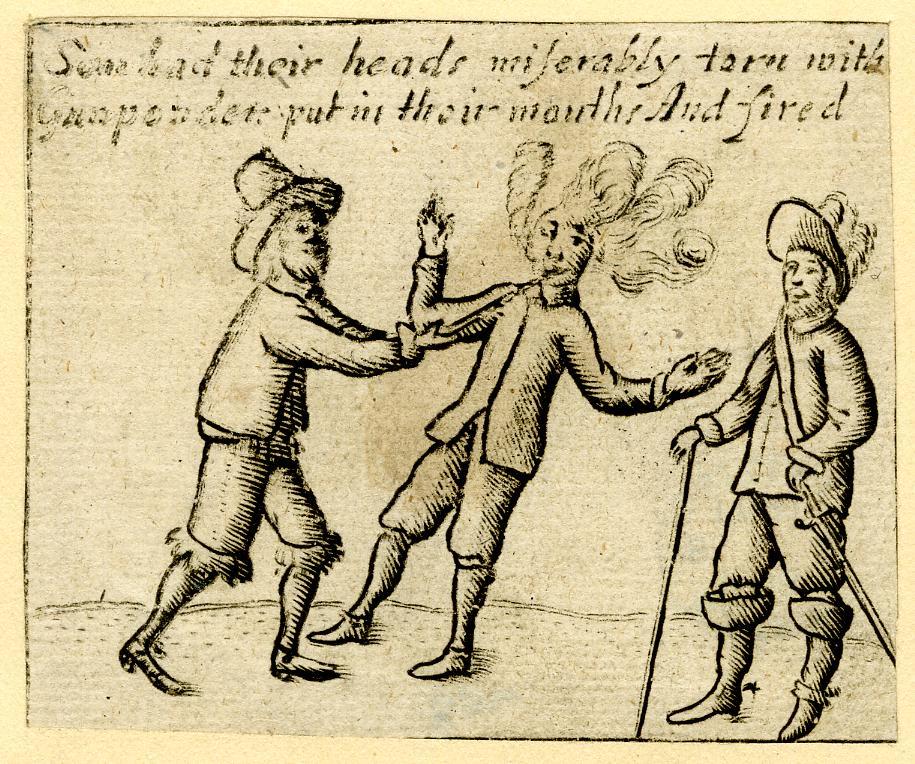 Som had their heads miſerably torn with
Gunpouder put in their mouths And fired